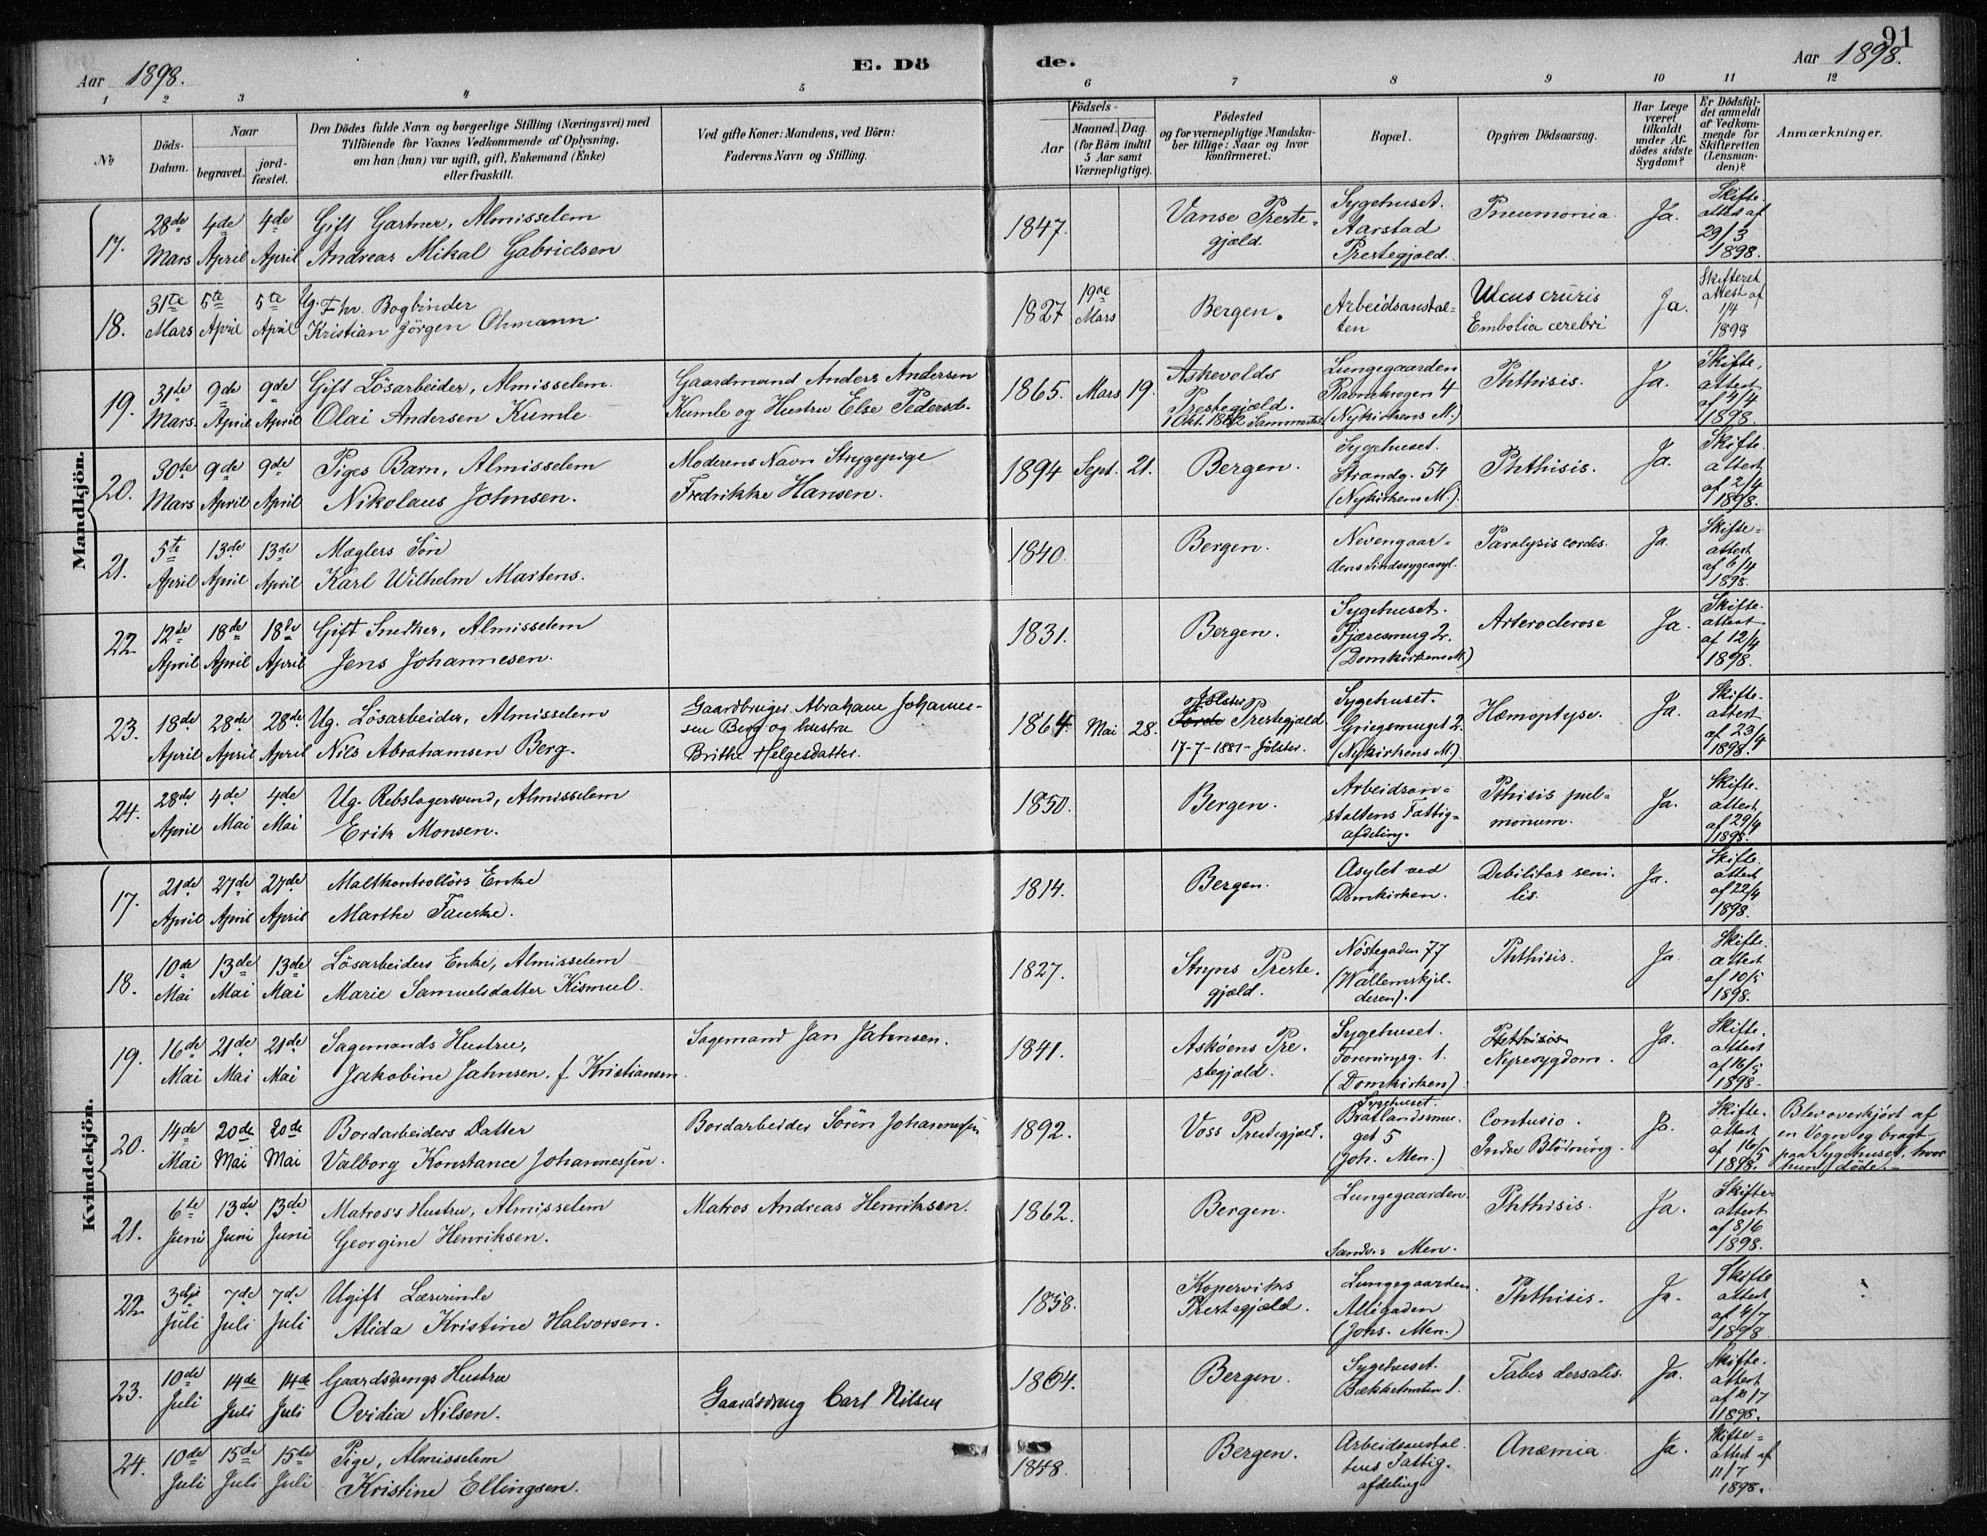 91
Aar 1898. E. Dö de. Aar 1898.
1 2 3 4 5 6 7 8 9 10 11 12
№
Döds-Datum.
Naar
begravet.
jord-fæstet.
Den Dödes fulde Navn og borgerlige Stilling (Næringsvei) med
Tilföiende for Voxnes Vedkommende af Oplysning,
om han (hun) var ugift, gift, Enkemand (Enke)
eller fraskilt.
Ved gifte Koner: Mandens, ved Börn:
Faderens Navn og Stilling.
Födsels-
Aar
Maaned. Dag.
(for Börn indtil
5 Aar samt
Værnepligtige).
Födested
og for værnepligtige Mandska-
ber tillige: Naar og hvor
konfirmeret.
Bopæl.
Opgiven Dödsaarsag.
Har Læge
været
tilkaldt
under Af-
dödes sidste
Sygdom?
Er Dödsfal-
det anmeldt
af Vedkom-
mende for
Skifteretten
(Lensman-
den)?
Anmærkninger.
Mandkjön.
17.
28de Mars
4de April
4de April
Gift Gartner, Almisselem
Andreas Mikal Gabrielsen
1847.
Vanse Preste-
gjæld.
Sygehuset.
Aarstad
Prestegjæld.
Pneumonia.
Ja.
Skifte-
attest af
29/3
1898.
18.
31te Mars
5te April
5te April
Ug. Fhv. Bogbinder
Kristian Jörgen Ohmann.
1827
19de Mars
Bergen.
Arbeidsanstal-
ten
Ulcus cruris
Embolia cerebri
Ja.
Skifteret
attest af
1/4
1898
19.
31te Mars.
9de April
9de April
Gift Lösarbeider, Almisselem.
Olai Andersen Kumle.
Gaardmand Anders Andersen
Kumle og Hustru Else Pedersd.
1865. Mars 19.
Askevolds
Prestegjæld.
1 Okt. 1882 Sammesteds
Lungegaarden
Ravnekrogen 4
(Nykirkens M.)
Phthisis.
Ja.
Skifte-
attest
af 4/4
1898.
20.
30te Mars
9de April
9de April
Piges Barn, Almisselem
Nikolaus Johnsen.
Moderens Navn Strygepige
Fredrikke Hansen.
1894 Sept. 21.
Bergen.
Sygehuset.
Strandg. 54
(Nykirkens M.)
Phthisis.
Ja.
Skifte-
attest
af 2/4
1898.
21.
5te April
13de April
13de April
Mæglers Sön
Karl Wilhelm Martens.
1840.
Bergen.
Nevengaar-
dens Sindssygeasyl.
Paralysis cordis.
Ja.
Skifte-
attest
af 6/4
1898.
22.
12te April
18de April
18de April
Gift Snedker, Almisselem
Jens Johannesen.
1831.
Bergen.
Sygehuset.
Fjæresmug 2.
(Domkirkens M.)
Arteroclerose
Ja.
Skifte-
attest
af 12/4
1898.
23.
18de April
28de April
28de April
Ug. Lösarbeider, Almisselem
Nils Abrahamsen Berg.
Gaardbruger Abraham Johannes-
sen Berg og hustru
Brithe Helgesdatter.
1864. Mai 28.
Jölster
Förde Prestegjæld
17-7-1881- Jölster.
Sygehuset.
Griegsmuget 2.
(Nykirkens M.)
Hæmoptyse.
Ja.
Skifte-
attest
af 23/4
1898.
24.
28de April
4de Mai
4de Mai
Ug. Rebslagersvend, Almisselem
Erik Monsen.
1850.
Bergen.
Arbeidsan-
staltens Fattig-
afdeling.
Pthisis pul-
monum.
Ja.
Skifte-
attest
af 29/4
1898.
Kvindekjön.
17.
21de April
27de April
27de April
Maltkontrollörs Enke
Marthe Fauske.
1814.
Bergen.
Asylet ved
Domkirken.
Debilitas seni-
lis.
Ja.
Skifte-
attest
af 22/4
1898.
18.
10de Mai
13de Mai
13de Mai
Lösarbeiders Enke, Almisselem
Marie Samuelsdatter Kismul.
1827.
Stryns Preste-
gjæld.
Nöstegaden 77
(Wallemskjel-
deren).
Phthisis.
Ja.
Skifte-
attest
af 10/5
1898.
19.
16de Mai
21de Mai
21de Mai
Sagemands Hustru,
Jakobine Jahnsen, f Kristiansen.
Sagemand Jan Jahnsen.
1841.
Askøens Pre-
stegjæld.
Sygehuset.
Foreningsg. 1.
(Domkirken)
Phthisis
Nyresygdom.
Ja.
Skifte-
attest
af 16/5
1898.
20.
14de Mai
20de Mai
20de Mai
Bordarbeiders Datter
Valborg Konstance Johannessen.
Bordarbeider Sören Johannessen
1892.
Voss Prestegjæld.
Sygehuset.
Bratlandsmu-
get 5
(Joh. Men.)
Contusio.
Indre Blödning.
Ja.
Skifte-
attest
af 16/5
1898.
Blev overkjört af
en Vogn og bragt
paa Sygehuset, hvor
hun döde.
21.
6te Juni
13de Juni
13de Juni
Matros's Hustru, Almisselem
Georgine Henriksen.
Matros Andreas Henriksen.
1862.
Bergen.
Lungegaarden.
Sandvs Men.
Phthisis.
Ja.
Skifte-
attest
af 8/6
1898.
22.
3die Juli
7de Juli
7de Juli
Ugift Lærerinde
Alida Kristine Halvorsen.
1858.
Koperviks
Prestegjæld.
Lungegaarden.
Allégaden
(Johs. Men.)
Phthisis.
Ja.
Skifte
attest
af 4/7
1898.
23.
10de Juli
14de Juli
14de Juli
Gaardsdrengs Hustru
Ovidia Nilsen.
Gaardsdreng Carl Nilsen
1864.
Bergen.
Sygehuset.
Bakketunten 1.
Tabes dorsalis.
Ja.
Skifte-
attest
af 11/7
1898.
24.
10de Juli
15de Juli
15de Juli
Pige, Almisselem
Kristine Ellingsen.
1848.
Bergen.
Arbeidsanstal-
tens Fattig-
afdeling
Anæmia.
Ja.
Skifte-
attest af
11/7
1898.